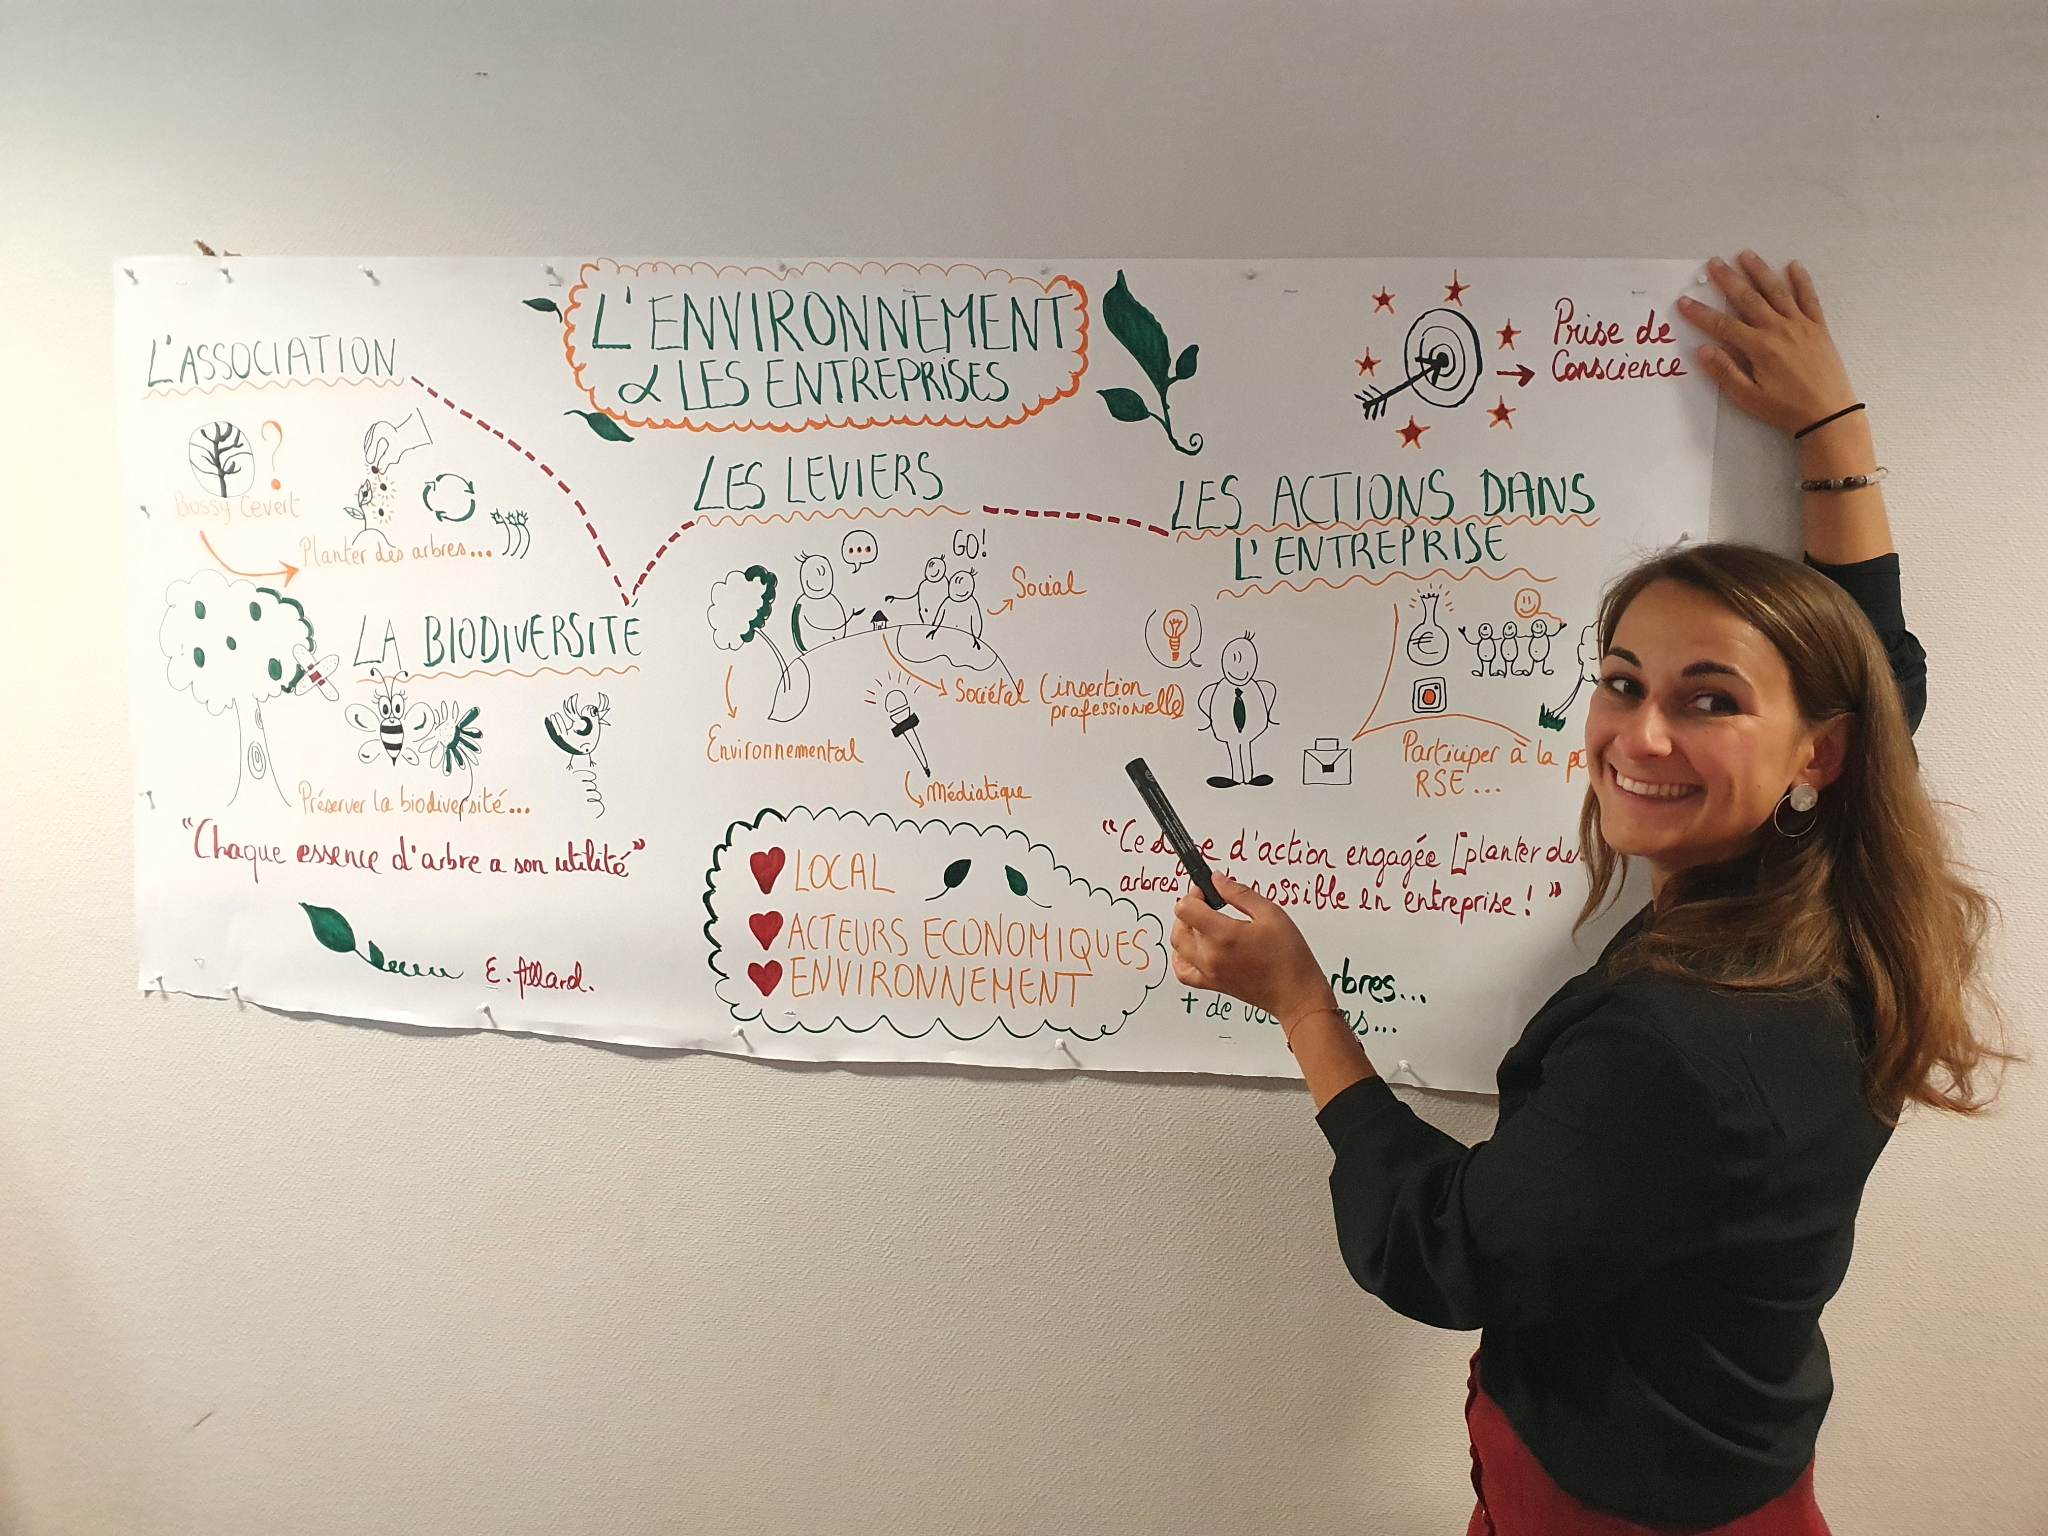 L'ENVIRONNEMENT
& LES ENTREPRISES
Prise de
Conscience
L'ASSOCIATION
?
Bossy Cevert
Planter des arbres...
LA BIODIVERSITÉ
Préserver la biodiversité...
"Chaque essence d'arbre a son utilité"
E. Allard.
LES LEVIERS
...
GO!
Social
Sociétal (insertion
professionnelle)
Environnemental
Médiatique
LOCAL
ACTEURS ECONOMIQUES
ENVIRONNEMENT
LES ACTIONS DANS
L'ENTREPRISE
€
Participer à la
RSE...
"Ce d'action engagée [planter des
arbres possible en entreprise!"
+ de